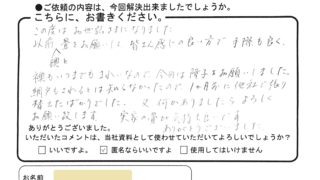 ●ご依頼の内容は、今回解決出来ましたでしょうか。
こちらに、お書きください。
この度はお世話さまになりました
以前、畳をお願いして 皆さん感じの良い方で 手際も良く、
襖も
襖もいつまでもきれいなので、今回は障子をお願いしました。
網戸もされるとは知らなかったので 1ヶ月前に他社で張り
替えたばかりでした。 又何かありましたらよろしく
お願い致します 実家の畳が気持ち良いです
ありがとうございました。
ありがとうございました。
いただいたコメントは、当社資料として使わせていただいてよろしいでしょうか?
□いいですよ。 ☑匿名ならいいですよ □使用してはいけません
お名前